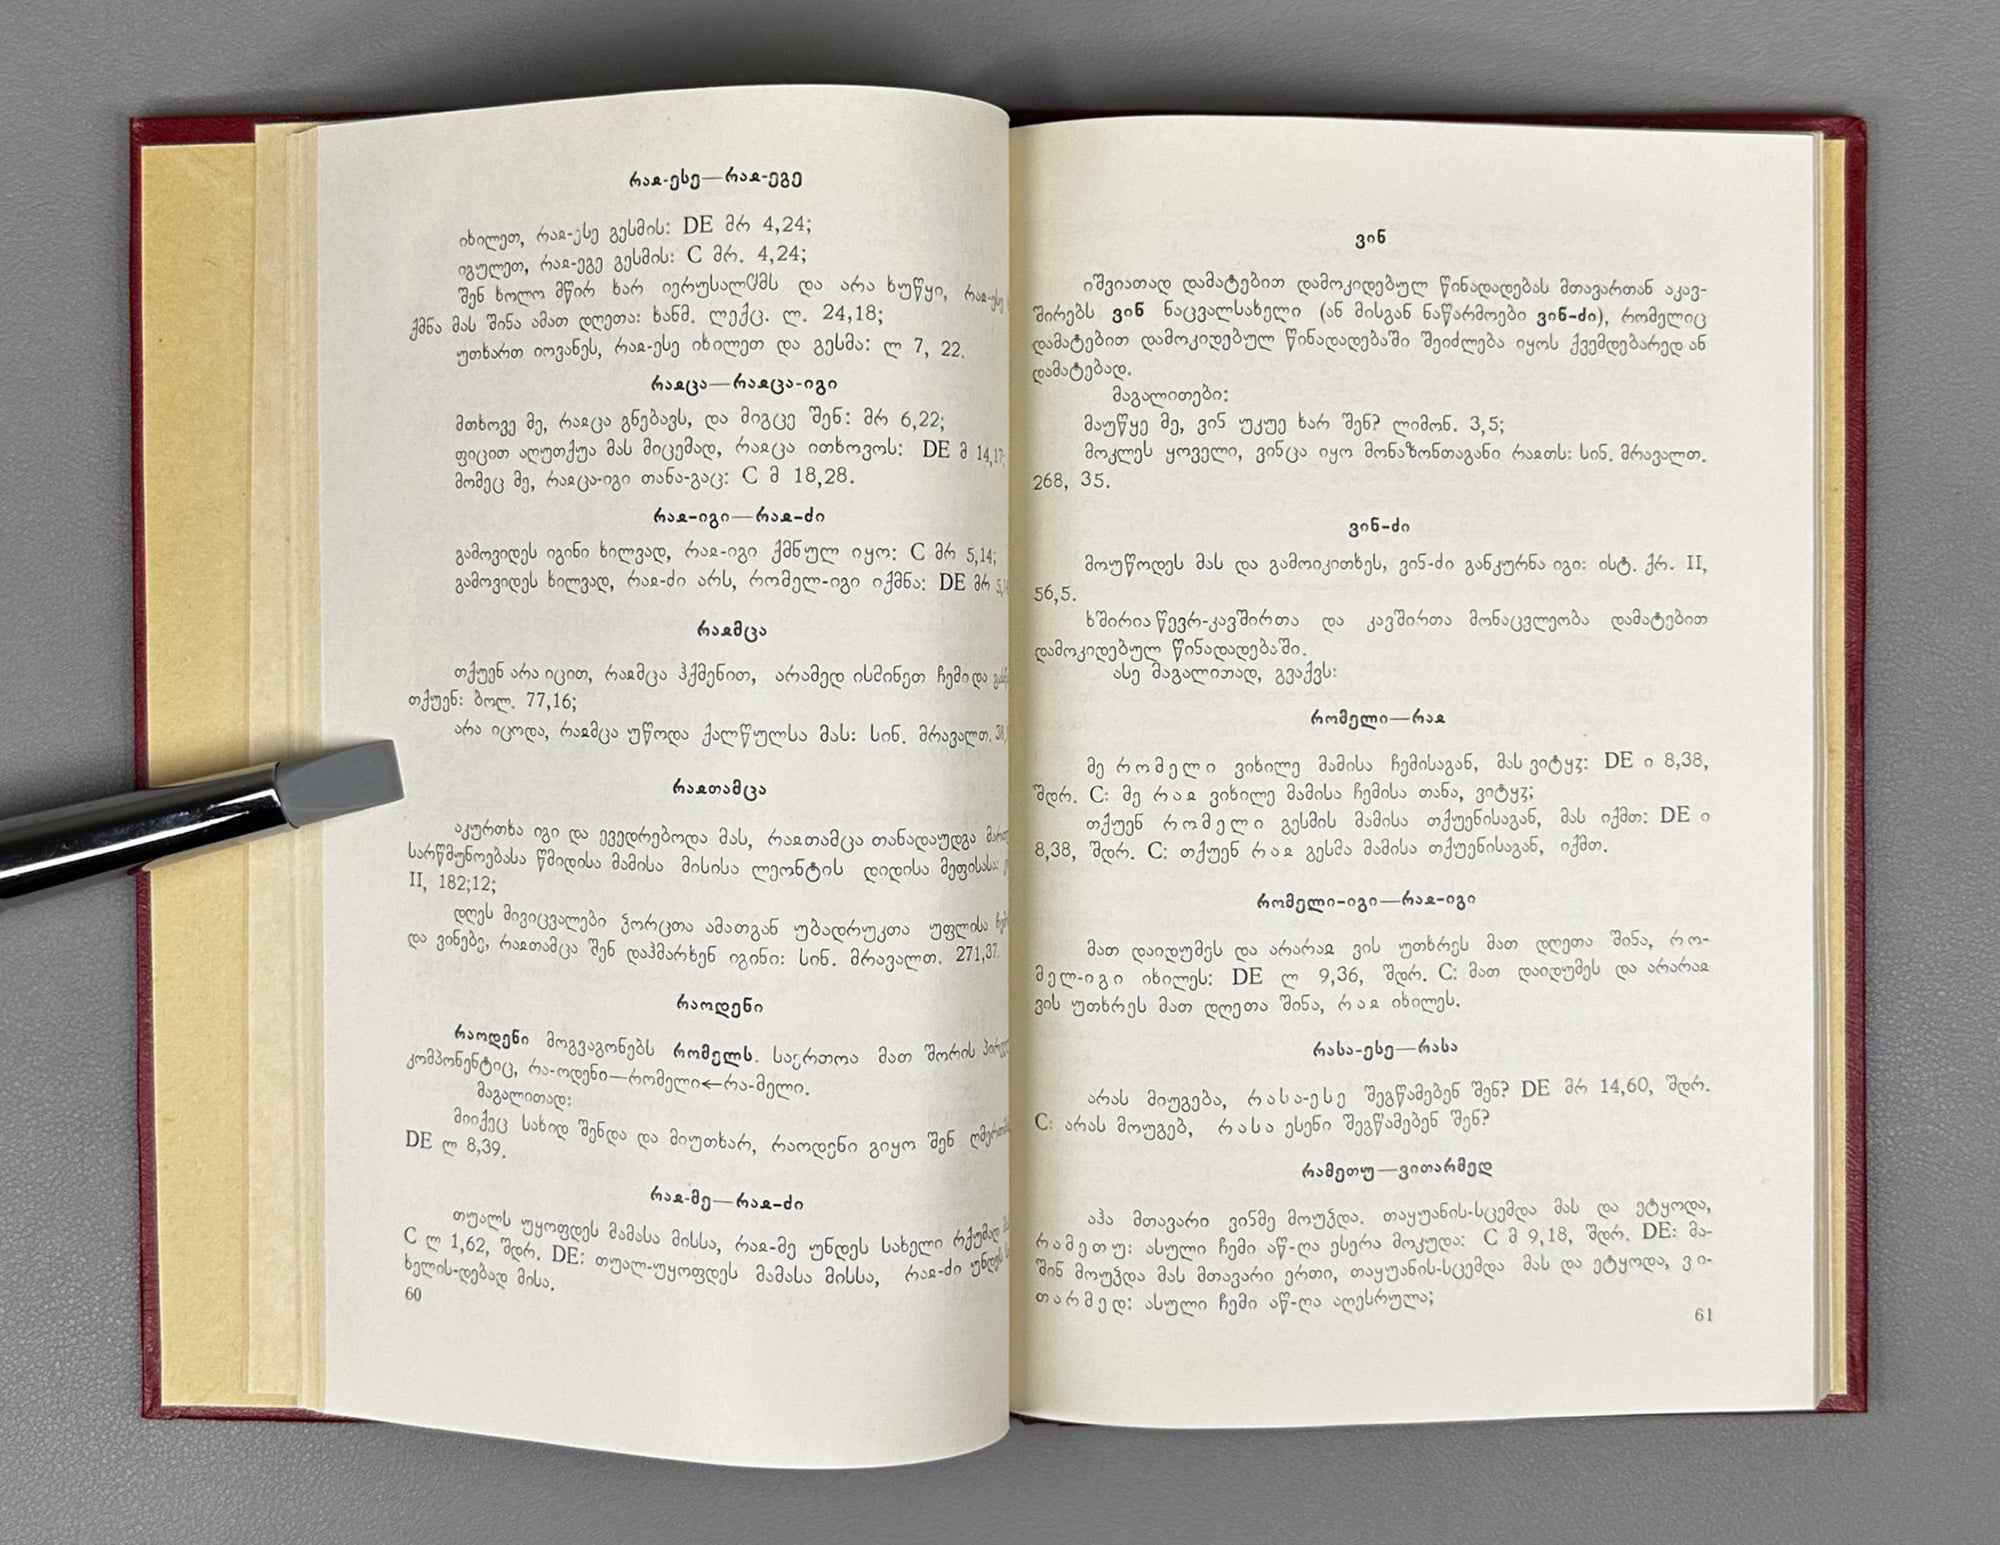 რაჲ-ესე—რაჲ-ეგე
იხილეთ, რაჲ-ესე გესმის: DE მრ 4,24;
იგულეთ, რაჲ-ეგე გესმის: C მრ. 4,24;
შენ ხოლო მწირ ხარ იერუსალჱმს და არა ხუწყი, რაჲ-ესე
ქმნა მას შინა ამათ დღეთა: ხანმ. ლექც. ლ. 24,18;
უთხართ იოვანეს, რაჲ-ესე იხილეთ და გესმა: ლ 7, 22.
რაჲცა—რაჲცა-იგი
მთხოვე მე, რაჲცა გნებავს, და მიგცე შენ: მრ 6,22;
ფიცით აღუთქუა მას მიცემად, რაჲცა ითხოვოს: DE მ 14,17;
მომეც მე, რაჲცა-იგი თანა-გაც: C მ 18,28.
რაჲ-იგი—რაჲ-ძი
გამოვიდეს იგინი ხილვად, რაჲ-იგი ქმნულ იყო: C მრ 5,14;
გამოვიდეს ხილვად, რაჲ-ძი არს, რომელ-იგი იქმნა: DE მრ
რაჲმცა
თქუენ არა იცით, რაჲმცა ჰქმენით, არამედ ისმინეთ ჩემი და
თქუენ: ბოლ. 77,16;
არა იცოდა, რაჲმცა უწოდა ქალწულსა მას: სინ. მრავალთ.
რაჲთამცა
აკურთხა იგი და ევედრებოდა მას, რაჲთამცა თანადაუდგა
სარწმუნოებასა წმიდისა მამისა მისისა ლეონტის დიდისა მეფისასა:
II, 182;12;
დღეს მივიცვალები ჴორცთა ამათგან უბადრუკთა უფლისა
და ვინებე, რაჲთამცა შენ დაჰმარხენ იგინი: სინ. მრავალთ. 271,37.
რაოდენი
რაოდენი მოგვაგონებს რომელს. საერთოა მათ შორის
კომპონენტიც, რა-ოდენი—რომელი←რა-მელი.
მაგალითად:
მიიქეც სახიდ შენდა და მიუთხარ, რაოდენი გიყო შენ
DE ლ 8,39.
რაჲ-მე—რაჲ-ძი
თუალს უყოფდეს მამასა მისსა, რაჲ-მე უნდეს სახელი რქუმად
C ლ 1,62, შდრ. DE: თუალ-უყოფდეს მამასა მისსა, რაჲ-ძი უნდეს
ხელის-დებად მისა.
60
ვინ
იშვიათად დამატებით დამოკიდებულ წინადადებას მთავართან აკავ-
შირებს ვინ ნაცვალსახელი (ან მისგან ნაწარმოები ვინ-ძი), რომელიც
დამატებით დამოკიდებულ წინადადებაში შეიძლება იყოს ქვემდებარედ ან
დამატებად.
მაგალითები:
მაუწყე მე, ვინ უკუე ხარ შენ? ლიმონ. 3,5;
მოკლეს ყოველი, ვინცა იყო მონაზონთაგანი რაჲთს: სინ. მრავალთ.
268, 35.
ვინ-ძი
მოუწოდეს მას და გამოიკითხეს, ვინ-ძი განკურნა იგი: ისტ. ქრ. II,
56,5.
ხშირია წევრ-კავშირთა და კავშირთა მონაცვლეობა დამატებით
დამოკიდებულ წინადადებაში.
ასე მაგალითად, გვაქვს:
რომელი—რაჲ
მე რომელი ვიხილე მამისა ჩემისაგან, მას ვიტყჳ: DE ი 8,38,
შდრ. C: მე რაჲ ვიხილე მამისა ჩემისა თანა, ვიტყჳ;
თქუენ რომელი გესმის მამისა თქუენისაგან, მას იქმთ: DE ი
8,38, შდრ. C: თქუენ რაჲ გესმა მამისა თქუენისაგან, იქმთ.
რომელი-იგი—რაჲ-იგი
მათ დაიდუმეს და არარაჲ ვის უთხრეს მათ დღეთა შინა, რო-
მელ-იგი იხილეს: DE ლ 9,36, შდრ. C: მათ დაიდუმეს და არარაჲ
ვის უთხრეს მათ დღეთა შინა, რაჲ იხილეს.
რასა-ესე—რასა
არას მიუგება, რასა-ესე შეგწამებენ შენ? DE მრ 14,60, შდრ.
C: არას მოუგებ, რასა ესენი შეგწამებენ შენ?
რამეთუ—ვითარმედ
აჰა მთავარი ვინმე მოუჴდა. თაყუანის-სცემდა მას და ეტყოდა,
რამეთუ: ასული ჩემი აწ-ღა ესერა მოკუდა: C მ 9,18, შდრ. DE: მა-
შინ მოუჴდა მას მთავარი ერთი, თაყუანის-სცემდა მას და ეტყოდა, ვი-
თარმედ: ასული ჩემი აწ-ღა აღესრულა;
61